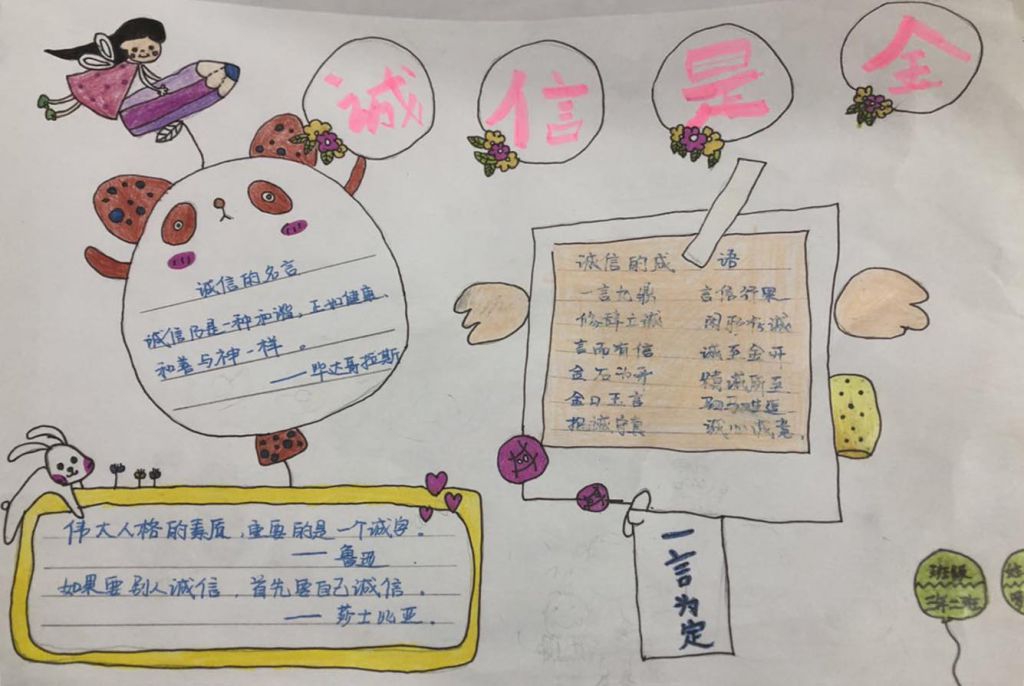 诚信是全
诚信的名言
诚信乃是一种和谐，正如健康、
和善与神一样。
——毕达哥拉斯
诚信的成语
一言九鼎 言信行果
修辞立诚
言而有信 诚至金开
金石为开 精诚所至
金口玉言 驷马难追
抱诚守真 诚心诚意，
一言为定
伟大人格的素质，重要的是一个诚字。
——鲁迅
如果要别人诚信，首先要自己诚信。
——莎士比亚。
班级